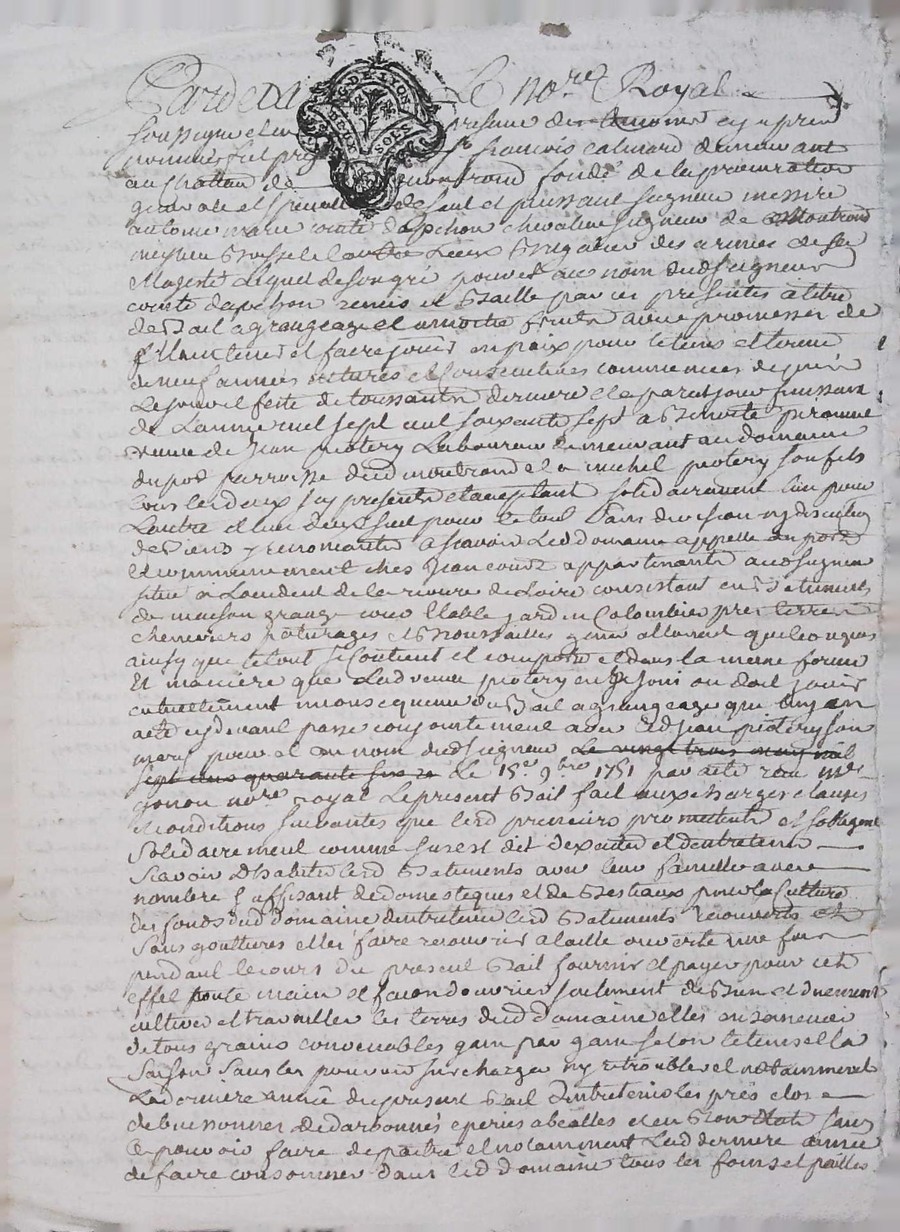 Pardevant le no.re Royal
soussigné et en presence des temoins cy apres
nommes fut pnt s.r françois calmard demeurant
au chateau de montrond fondé de la procuration
generale et specialle de haut et puissant seigneur messire
antoine marie comte dapchon chevalier seigneur de Montrond
meylieu et autres lieux Brigadier des armées de sa
Majesté lequel de son gré pouvoir au nom dud seigneur
comte dapchon remis et Baille par ces presentes a titre
de Bail a grangeage et a moitié fruits avec promesses de
maintenir et faire jouir en paix pour le tems et terme
de neuf années entieres et consecutives commencées
le jour et feste de toussaints derniere et a pareil jour finissant
de lannée mil sept cent soixante sept a Benoite peronne
veuve de Jean piotery Laboureur demeurant au domaine
du port parroisse dud montrond et a michel piotery son fils
tous les deux icy presents et acceptant solidairement lun pour
lautre et lun deux seul pour le tout sans division ny discution
de Biens y renonçants a scavoir led domaine appellé du port
et communement chez Jean appartenant aud seigneur
situé a loccident de la riviere de Loire consistant en Batiments
de maison grange cour Etable jardin Colombier pres terres
cheneviers paturages et Broussailles generallement quelconques
ainsy que le tout se contient et comporte et dans la meme forme
et maniere que lad veuve piotery en a joui ou dub jouir
actuellement en consequence du Bail a grangeage que luy en
a été cydevant passé conjointement avec led Jean piotery son
mary pour et au nom dud seigneur le vingt trois may mil
sept cens quarante six le 15.e 9bre 1751 par acte reçu m.e
gonon no.re royal Le present Bail fait aux charges clauses
et conditions suivantes que lesd preneurs promettent et sobligent
solidairement comme sus est dit dexecuter et dentretenir
Scavoir Dhabiter lesd Batiments avec leur famille avec
nombre suffisant de domestiques et de Bestiaux pour la Culture
des fonds dud domaine dentretenir lesd Batiments recouverts et
sans gouttieres et les faire recouvrir a taille ouverte une fois
pendant le cours du present Bail fournir et payer pour cet
effet toute main et façon douvrier seulement de Bien et duement
cultiver et travailler les terres dud domaine et les ensemencer
de tous grains convenables gain par gain selon le tems et la
saison sans les pouvoir surcharger ny retroubler et notamment
La derniere année du present Bail dentretenir les prés clos
debuissonnes detarbonnes eperies abealles et en Bon Etat sans
le pouvoir faire depaitre et notamment lad derniere année
de faire consommer dans led domaine tous les foins et pailles